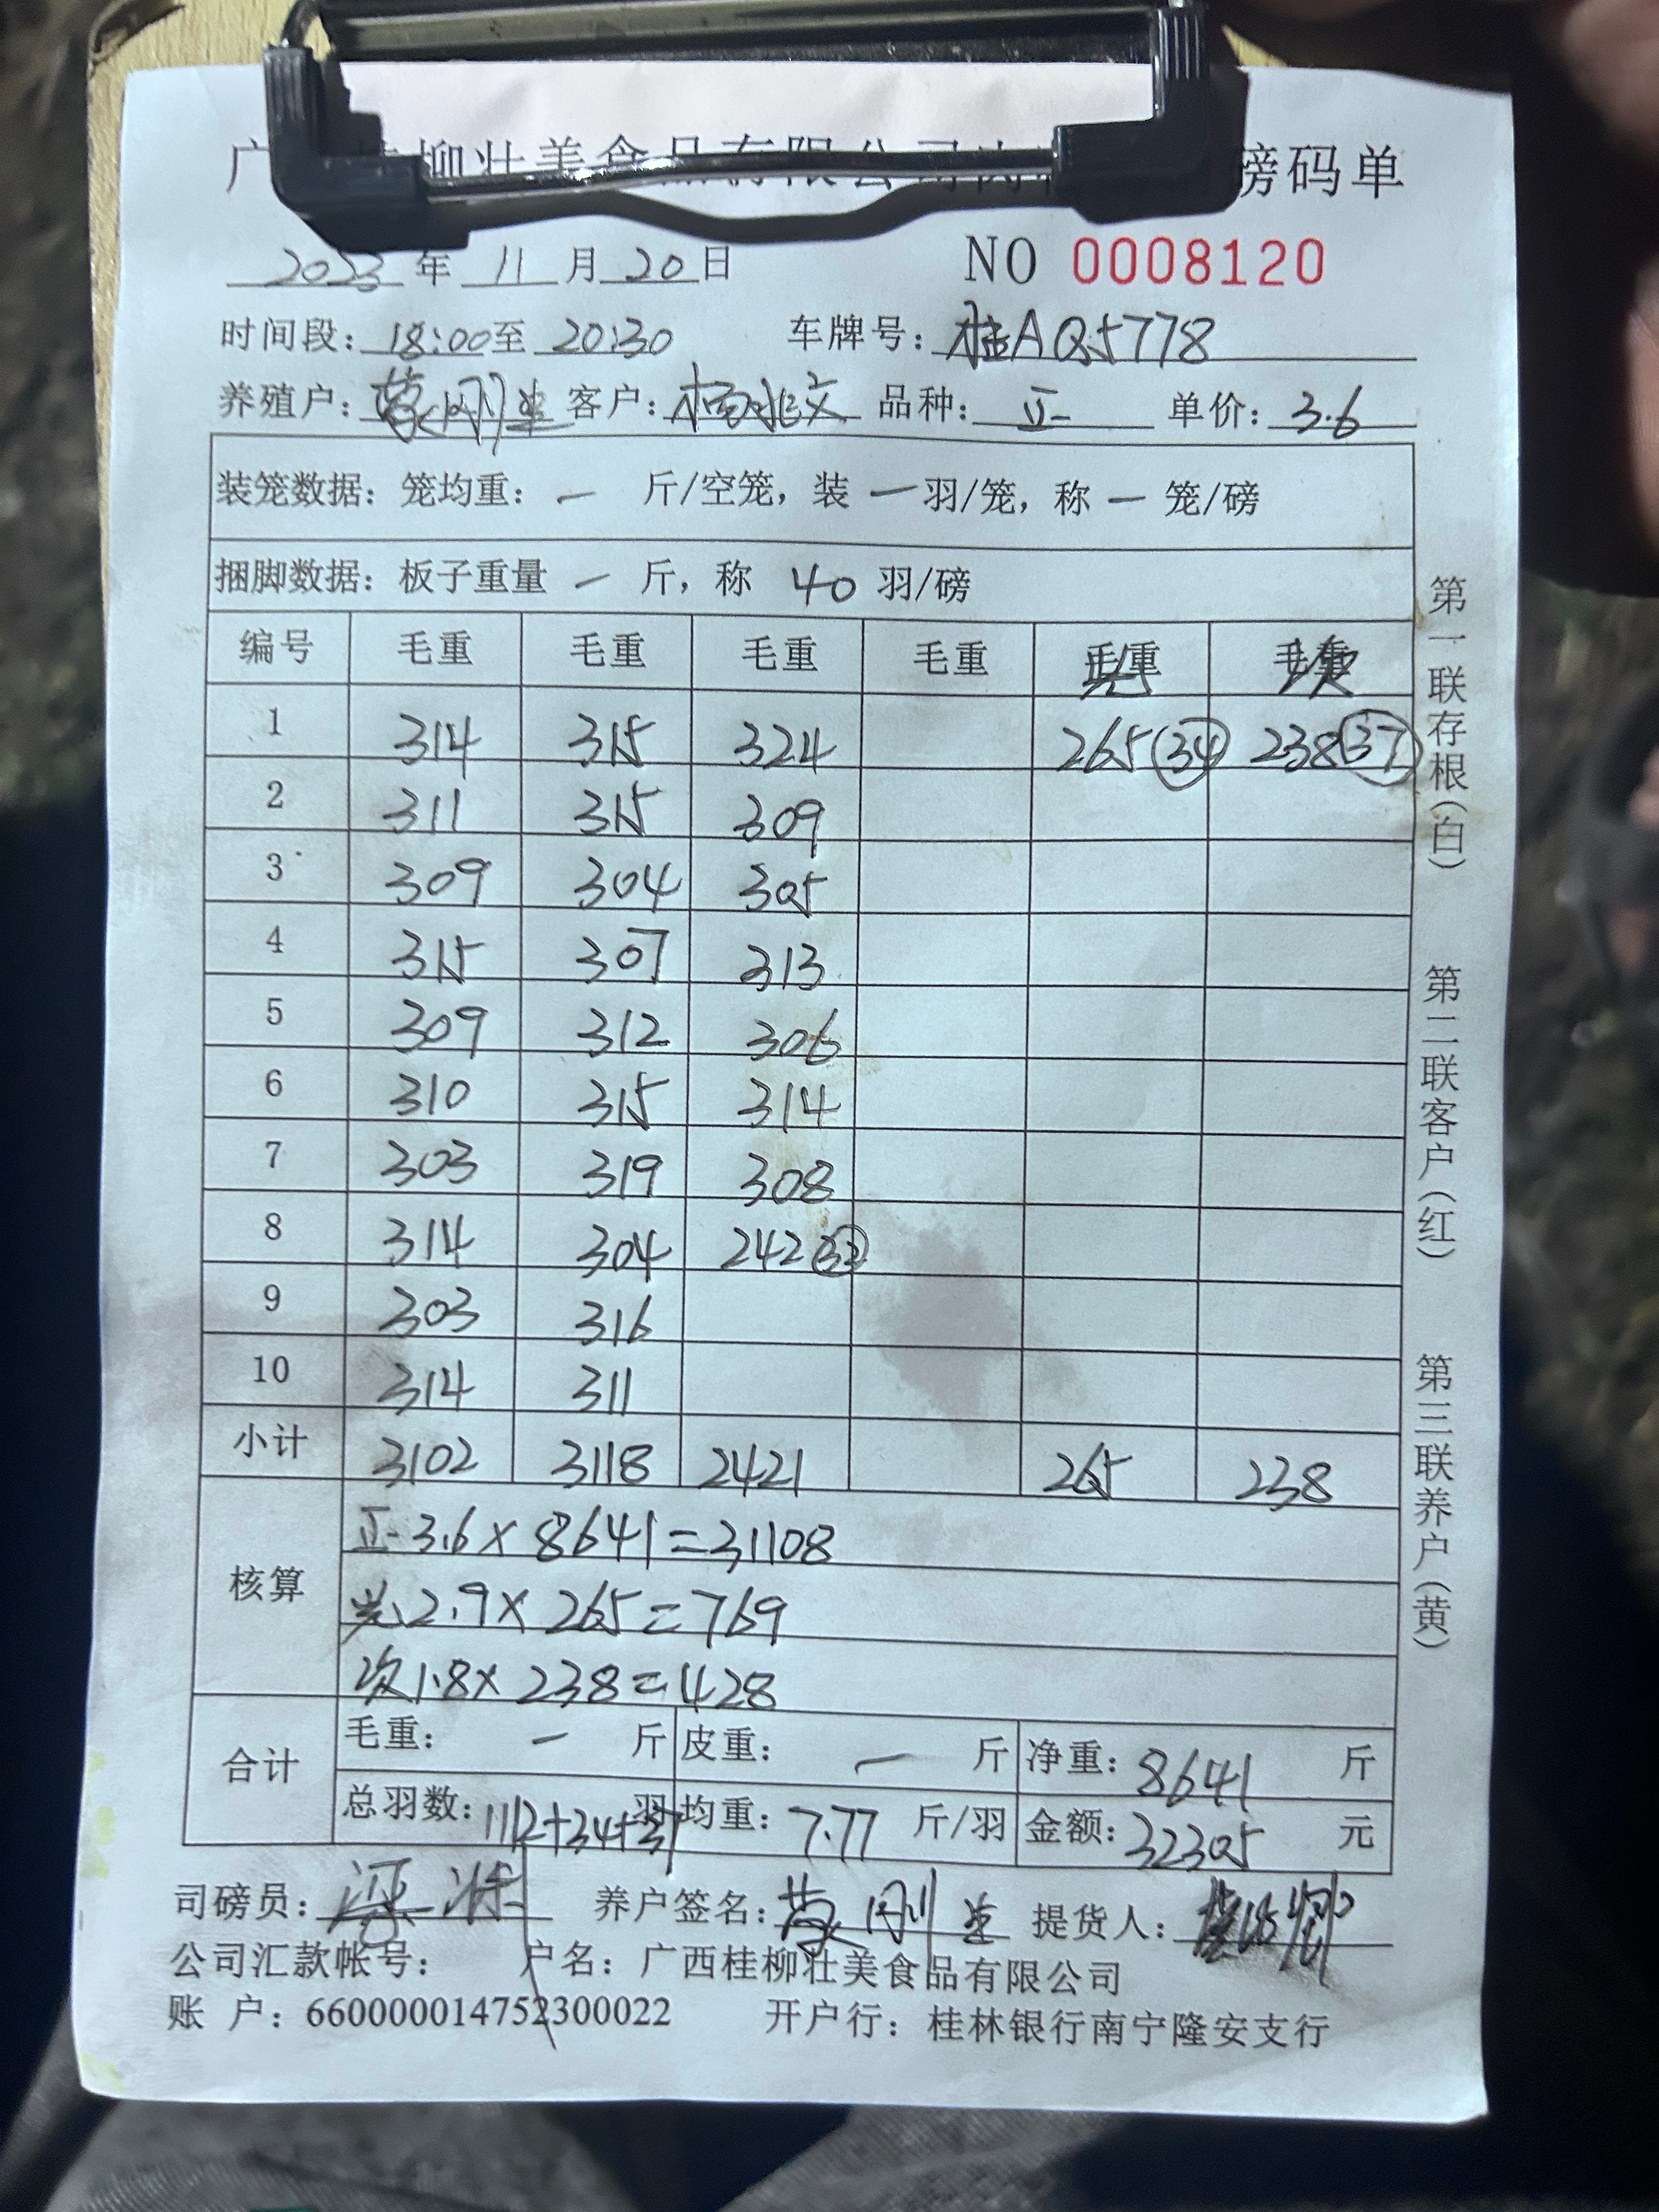 广 柳壮美食品有限公司肉 磅码单
2023年11月20日 NO 0008120
时间段：18:00至20:30 车牌号：桂AQ5778
养殖户：蒙刚 客户：杨兆文 品种：正 单价：3.6
装笼数据：笼均重：一 斤/空笼，装一羽/笼，称一笼/磅
捆脚数据：板子重量一斤，称 40 羽/磅
编号 毛重 毛重 毛重 毛重 毛重 毛重 次
1 314 315 324 265 34 238 37
2 311 315 309
3 309 304 305
4 315 307 313
5 309 312 306
6 310 315 314
7 303 319 308
8 314 304 242 32
9 303 316
10 314 311
小计 3102 3118 2421 265 238
核算
正 3.6×8641=31108
2.9×265=769
次1.8×238=428
合计
毛重：一 斤 皮重：一 斤 净重：8641 斤
总羽数：1112+34+37羽 均重：7.77 斤/羽 金额：32305 元
司磅员： 养户签名：蒙刚 提货人：
公司汇款帐号： 户名：广西桂柳壮美食品有限公司
账 户：660000014752300022 开户行：桂林银行南宁隆安支行
第一联存根（白） 第二联客户（红） 第三联养户（黄）